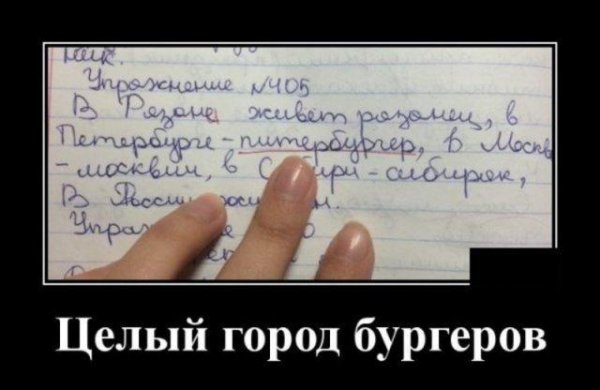 Упражнение №405
В Рязане живет рязанец, в
Петербурге - питербургер, В Москв
- москвич, в Сибири - сибиряк,
В России россиян.
Целый город бургеров